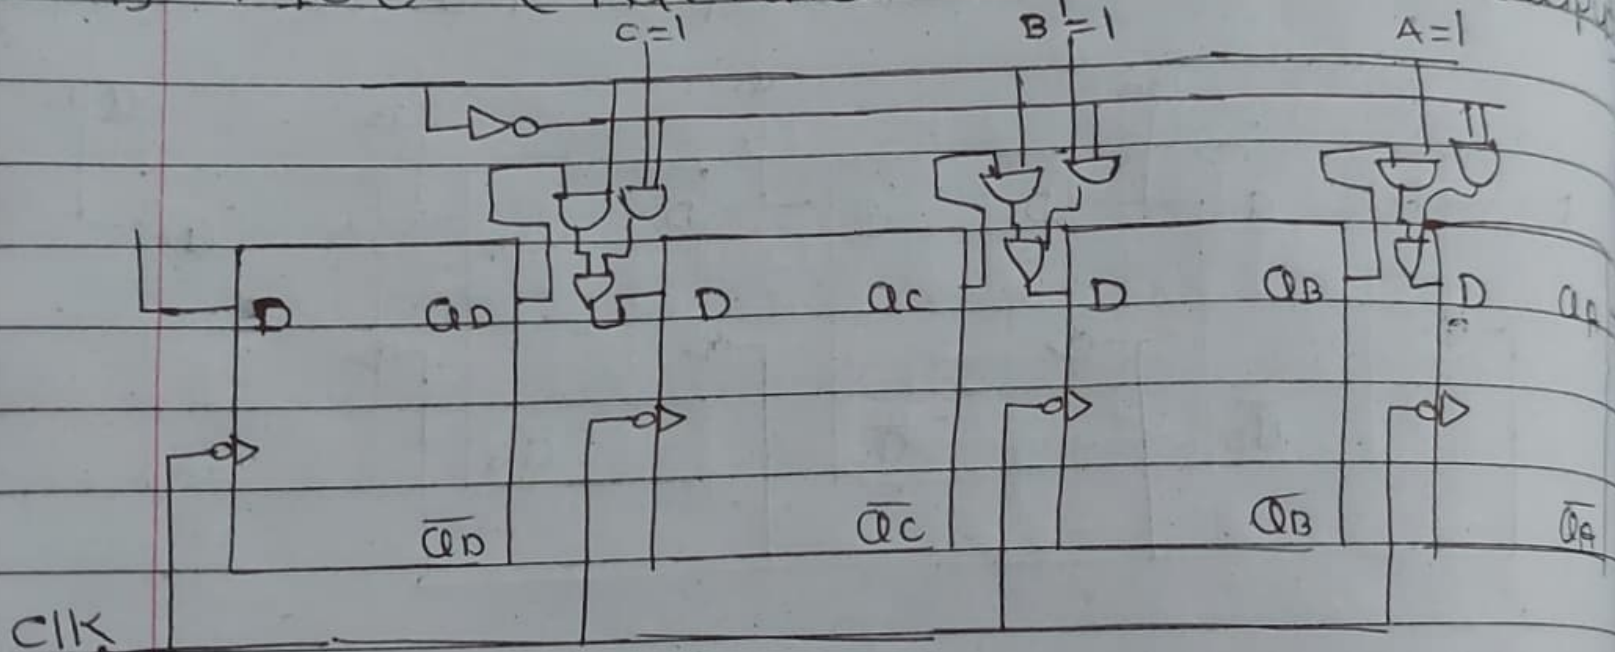 C=1 B=1 A=1
D QD D QC D QB D QA
Q̅D̅ Q̅C̅ Q̅B̅ Q̅A̅
Clk